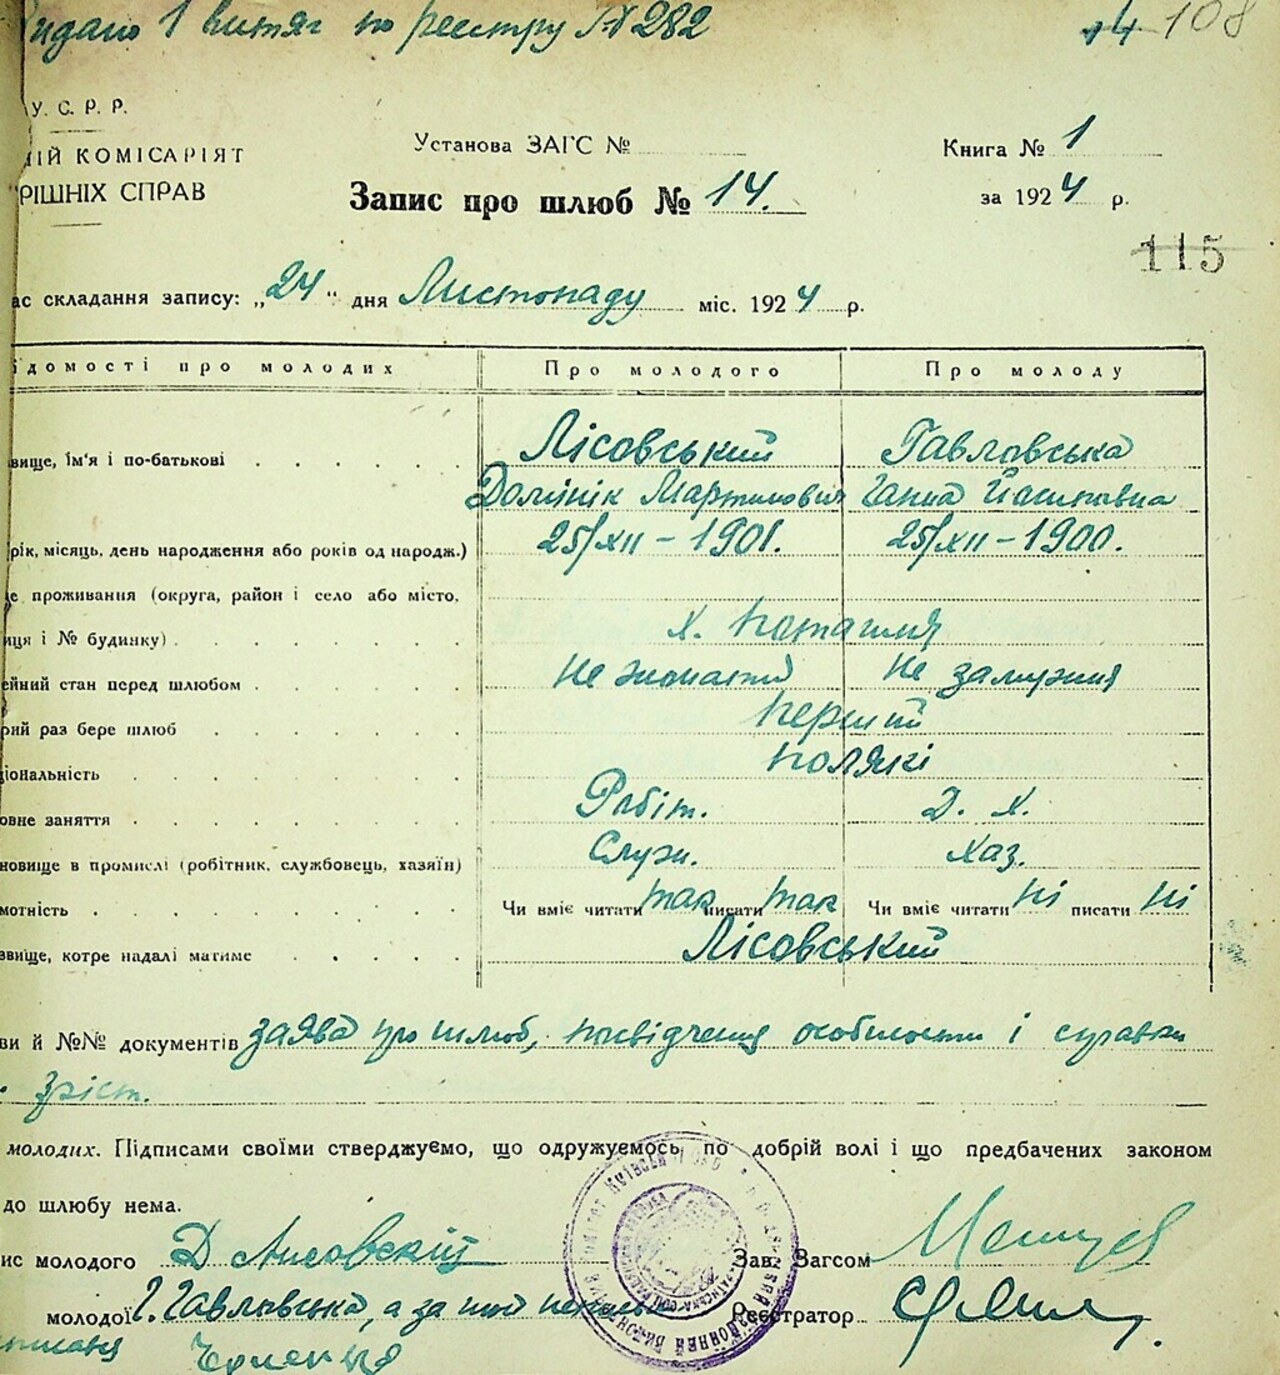 видано 1 витяг по реєстру № 282
14 108
У. С. Р. Р.
КОМІСАРІЯТ
СПРАВ
Установа ЗАГС №
Запис про шлюб № 14.
Книга № 1
за 1924 р.
115
складання запису: „24“ дня Листопаду міс. 1924 р.
про молодих Про молодого Про молоду
Лісовський Гавловська
ім'я і по-батькові
Домінік Мартинович Ганна Йосиповна
рік, місяць, день народження або років од народж.) 25/XII – 1901. 25/XII – 1900.
проживання (округа, район і село або місто,
і № будинку) х. Поташня
стан перед шлюбом не жонатий не замужня
раз бере шлюб перший
полякі
заняття Робіт. Д. Х.
в промислі (робітник, службовець, хазяїн) Служ. Хаз.
Чи вміє читати так писати так Чи вміє читати ні писати ні
котре надалі матиме Лісовський
й №№ документів заява про шлюб, посвідчення особистости і справки
зріст.
молодих. Підписами своїми стверджуємо, що одружуємось по добрій волі і що предбачених законом
до шлюбу нема.
молодого Д Лисовский Зав. Загсом
молодої Г. Гавловська, а за Реєстратор